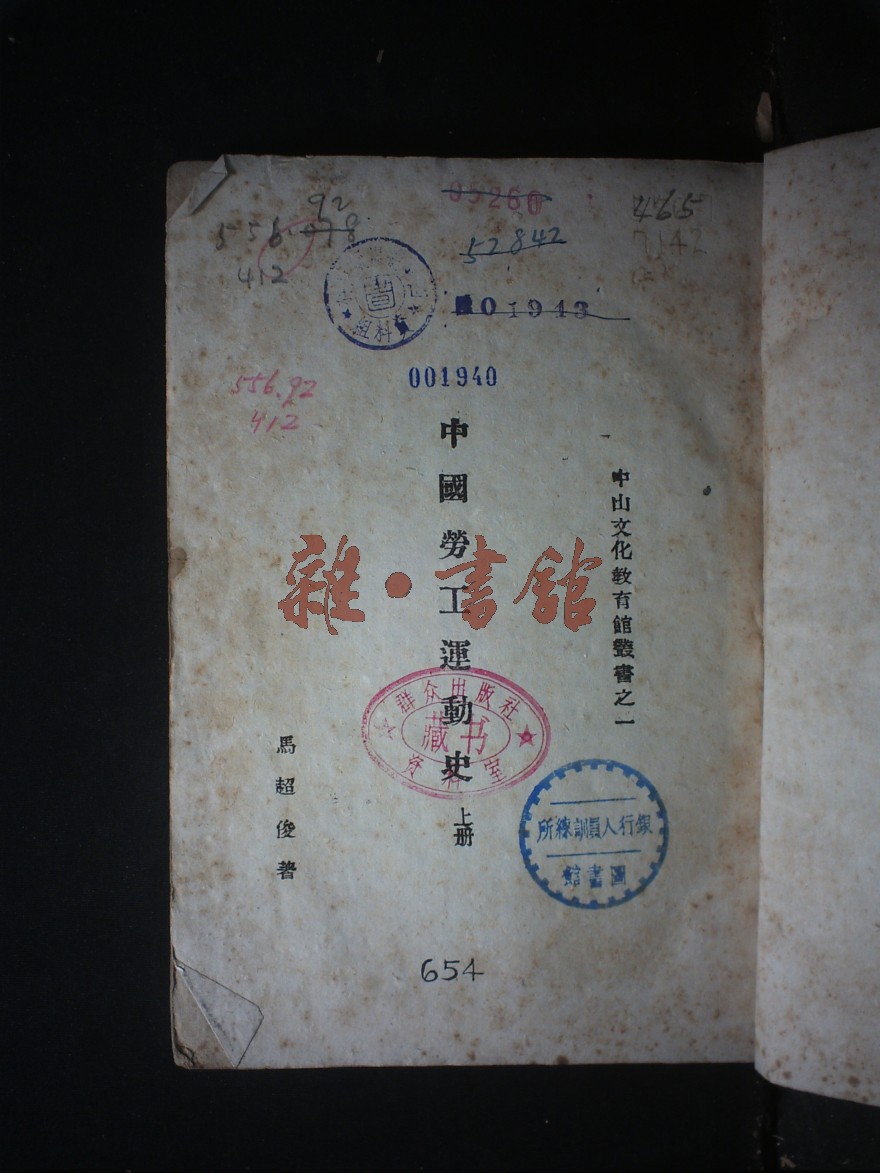 92
556.78
412
05260
52842
465
7142
資料組
01943
001940
556.92
412
中山文化教育館叢書之一
中國勞工運動史 上册
馬超俊著
雜·書館
群众出版社
藏书
资料室
銀行人員訓練所
圖書館
654